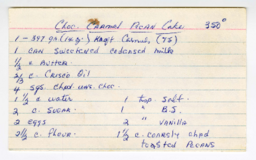 Choc. Caramel Pecan Cake 350°
1 - 397 gm (14 oz) Kraft Carmels, (75)
1 can sweetened codensed milk
1/2 c butter
2/3 c. Crisco Oil
4 sqs. chpd. uns. choc.
1 1/2 c water 1 tsp salt.
2 c. sugar 1 " B.S.
2 eggs 2 " vanilla
2 1/2 c. flour 1 1/2 c - coarsely chpd
toasted pecans